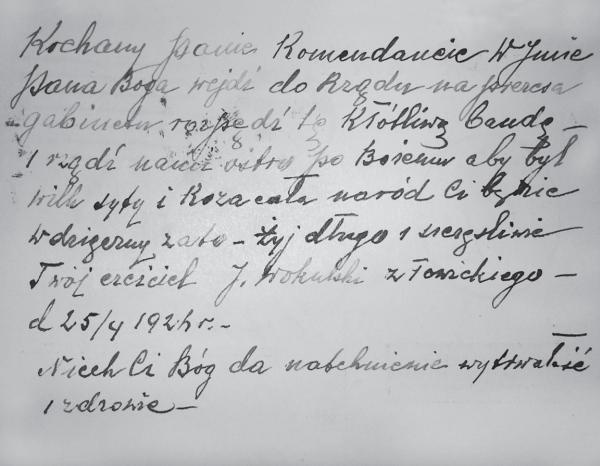 Kochany Panie Komendancie W Imie
Pana Boga wejdź do Rządu na prezesa
gabinetu rozpędź tę Kłótliwą bandę –
i rządź nami ostro po Bożemu aby był
wilk syty i Koza cała naród Ci będzie
wdzięczny zato – żyj długo i szczęśliwie
Twój czciciel J. Wokulski z Łowickiego –
d 25/4 192 r. –
Niech Ci Bóg da natchnienie wytrwałość
i zdrowie –